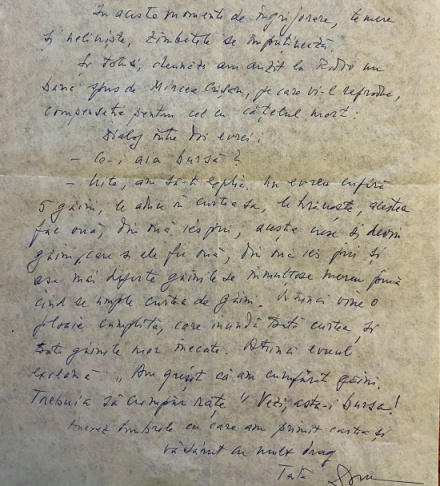 În aceste momente de îngrijorare, temere
și neliniște, zâmbetele se împuținează.
Și totuși, deunăzi am auzit la Radio un
banc spus de Mircea Crișan, pe care vi-l reproduc,
compensație pentru cel cu cățelul mort:
Dialog între doi evrei:
- Ce-i aia bursă?
- Uite, am să-ți explic. Un evreu cumpără
5 găini, le aduce în curtea sa, le hrănește, acestea
fac ouă, din ouă ies pui, aceștia cresc și devin
găini, care și ele fac ouă, din ouă ies pui și
așa mai departe găinile se înmulțesc mereu până
când se umple curtea de găini. Atunci vine o
ploaie cumplită, care inundă toată curtea, și
toate găinile mor înecate. Atunci evreul
exclamă: "Am greșit că am cumpărat găini.
Trebuia să cumpăr rațe" Vezi, asta-i bursa!
Anexez timbrele cu care am primit cartea și
vă sărut cu mult drag
Tata